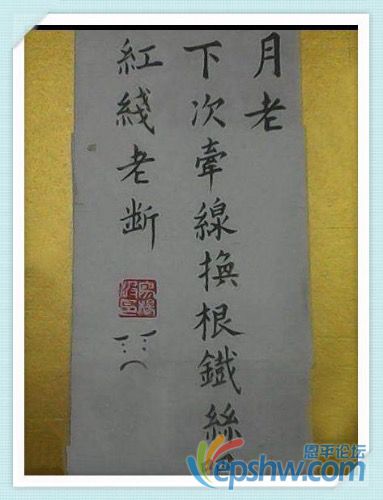 月老
下次牽線換根鐵絲吧
紅綫老断
恩平论坛
epshw.com